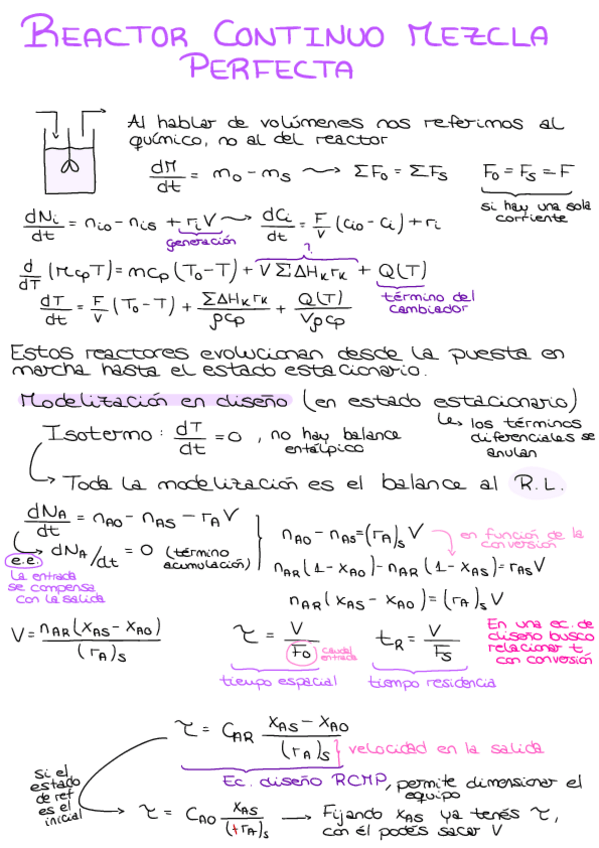 REACTOR CONTINUO MEZCLA
PERFECTA
Al hablar de volúmenes nos referimos al
químico, no al del reactor
dM/dt = m₀ - mₛ ⟿ ΣF₀ = ΣFₛ F₀ = Fₛ = F
si hay una sola
corriente
dNi/dt = ni₀ - niₛ + ri V ⟿ dCi/dt = F/V (Ci₀ - Ci) + ri
generación
?
d/dT (M cp T) = m cp (T₀ - T) + V Σ ΔHK rK + Q(T)
término del
cambiador
dT/dt = F/V (T₀ - T) + ΣΔHK rK / ρcp + Q(T) / Vρcp
Estos reactores evolucionan desde la puesta en
marcha hasta el estado estacionario.
Modelización en diseño (en estado estacionario)
los términos
diferenciales se
anulan
Isotermo: dT/dt = 0, no hay balance
entálpico
Toda la modelización es el balance al R.L.
dNA/dt = nA0 - nAS - rA V
e.e. dNA/dt = 0 (término
acumulación)
la entrada
se compensa
con la salida
nA0 - nAS = (rA)S V
en función de la
conversión
nAR (1 - XA0) - nAR (1 - XAS) = rAS V
nAR (XAS - XA0) = (rA)S V
V = nAR (XAS - XA0) / (rA)S
τ = V / F0 caudal
entrada
tiempo espacial
tR = V / FS
tiempo residencia
En una ec. de
diseño busco
relacionar t
con conversión
τ = CAR (XAS - XA0) / (rA)S velocidad en la salida
Ec. diseño RCMP, permite dimensionar el
equipo
Si el
estado
de ref
es el
inicial
τ = CA0 XAS / (+rA)S → Fijando XAS ya tenés τ,
con él podés sacar V